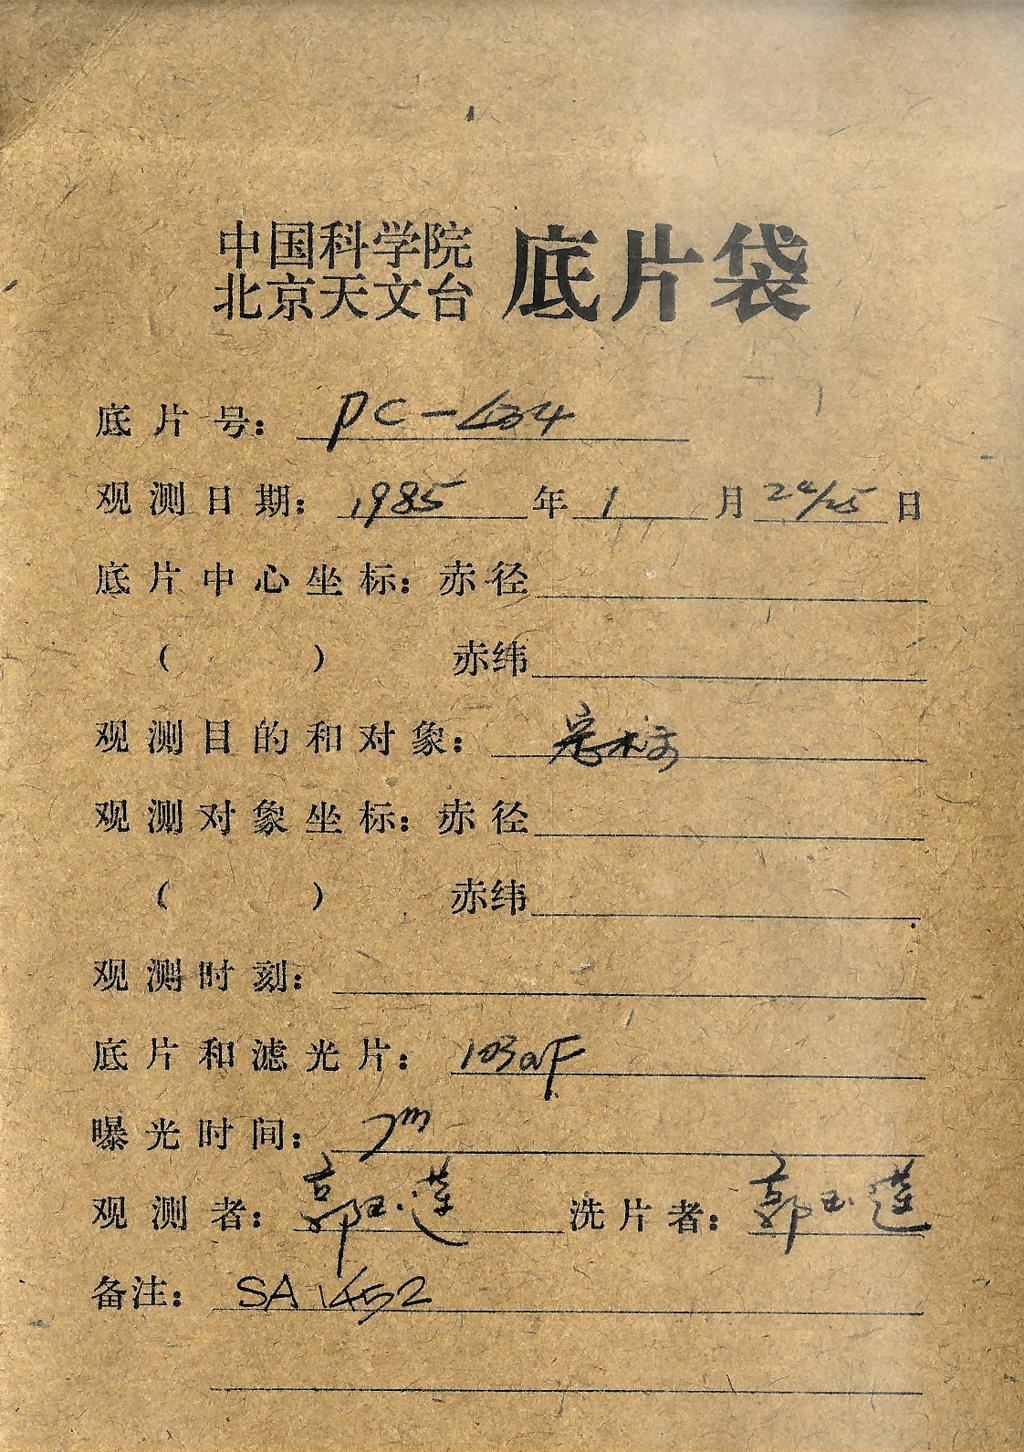 中国科学院
北京天文台 底片袋
底片号: PC-434
观测日期: 1985 年 1 月 24/25 日
底片中心坐标: 赤径
( ) 赤纬
观测目的和对象: 定标
观测对象坐标: 赤径
( ) 赤纬
观测时刻:
底片和滤光片: 103aF
曝光时间: 7m
观测者: 郭玉莲 洗片者: 郭玉莲
备注: SA 1452